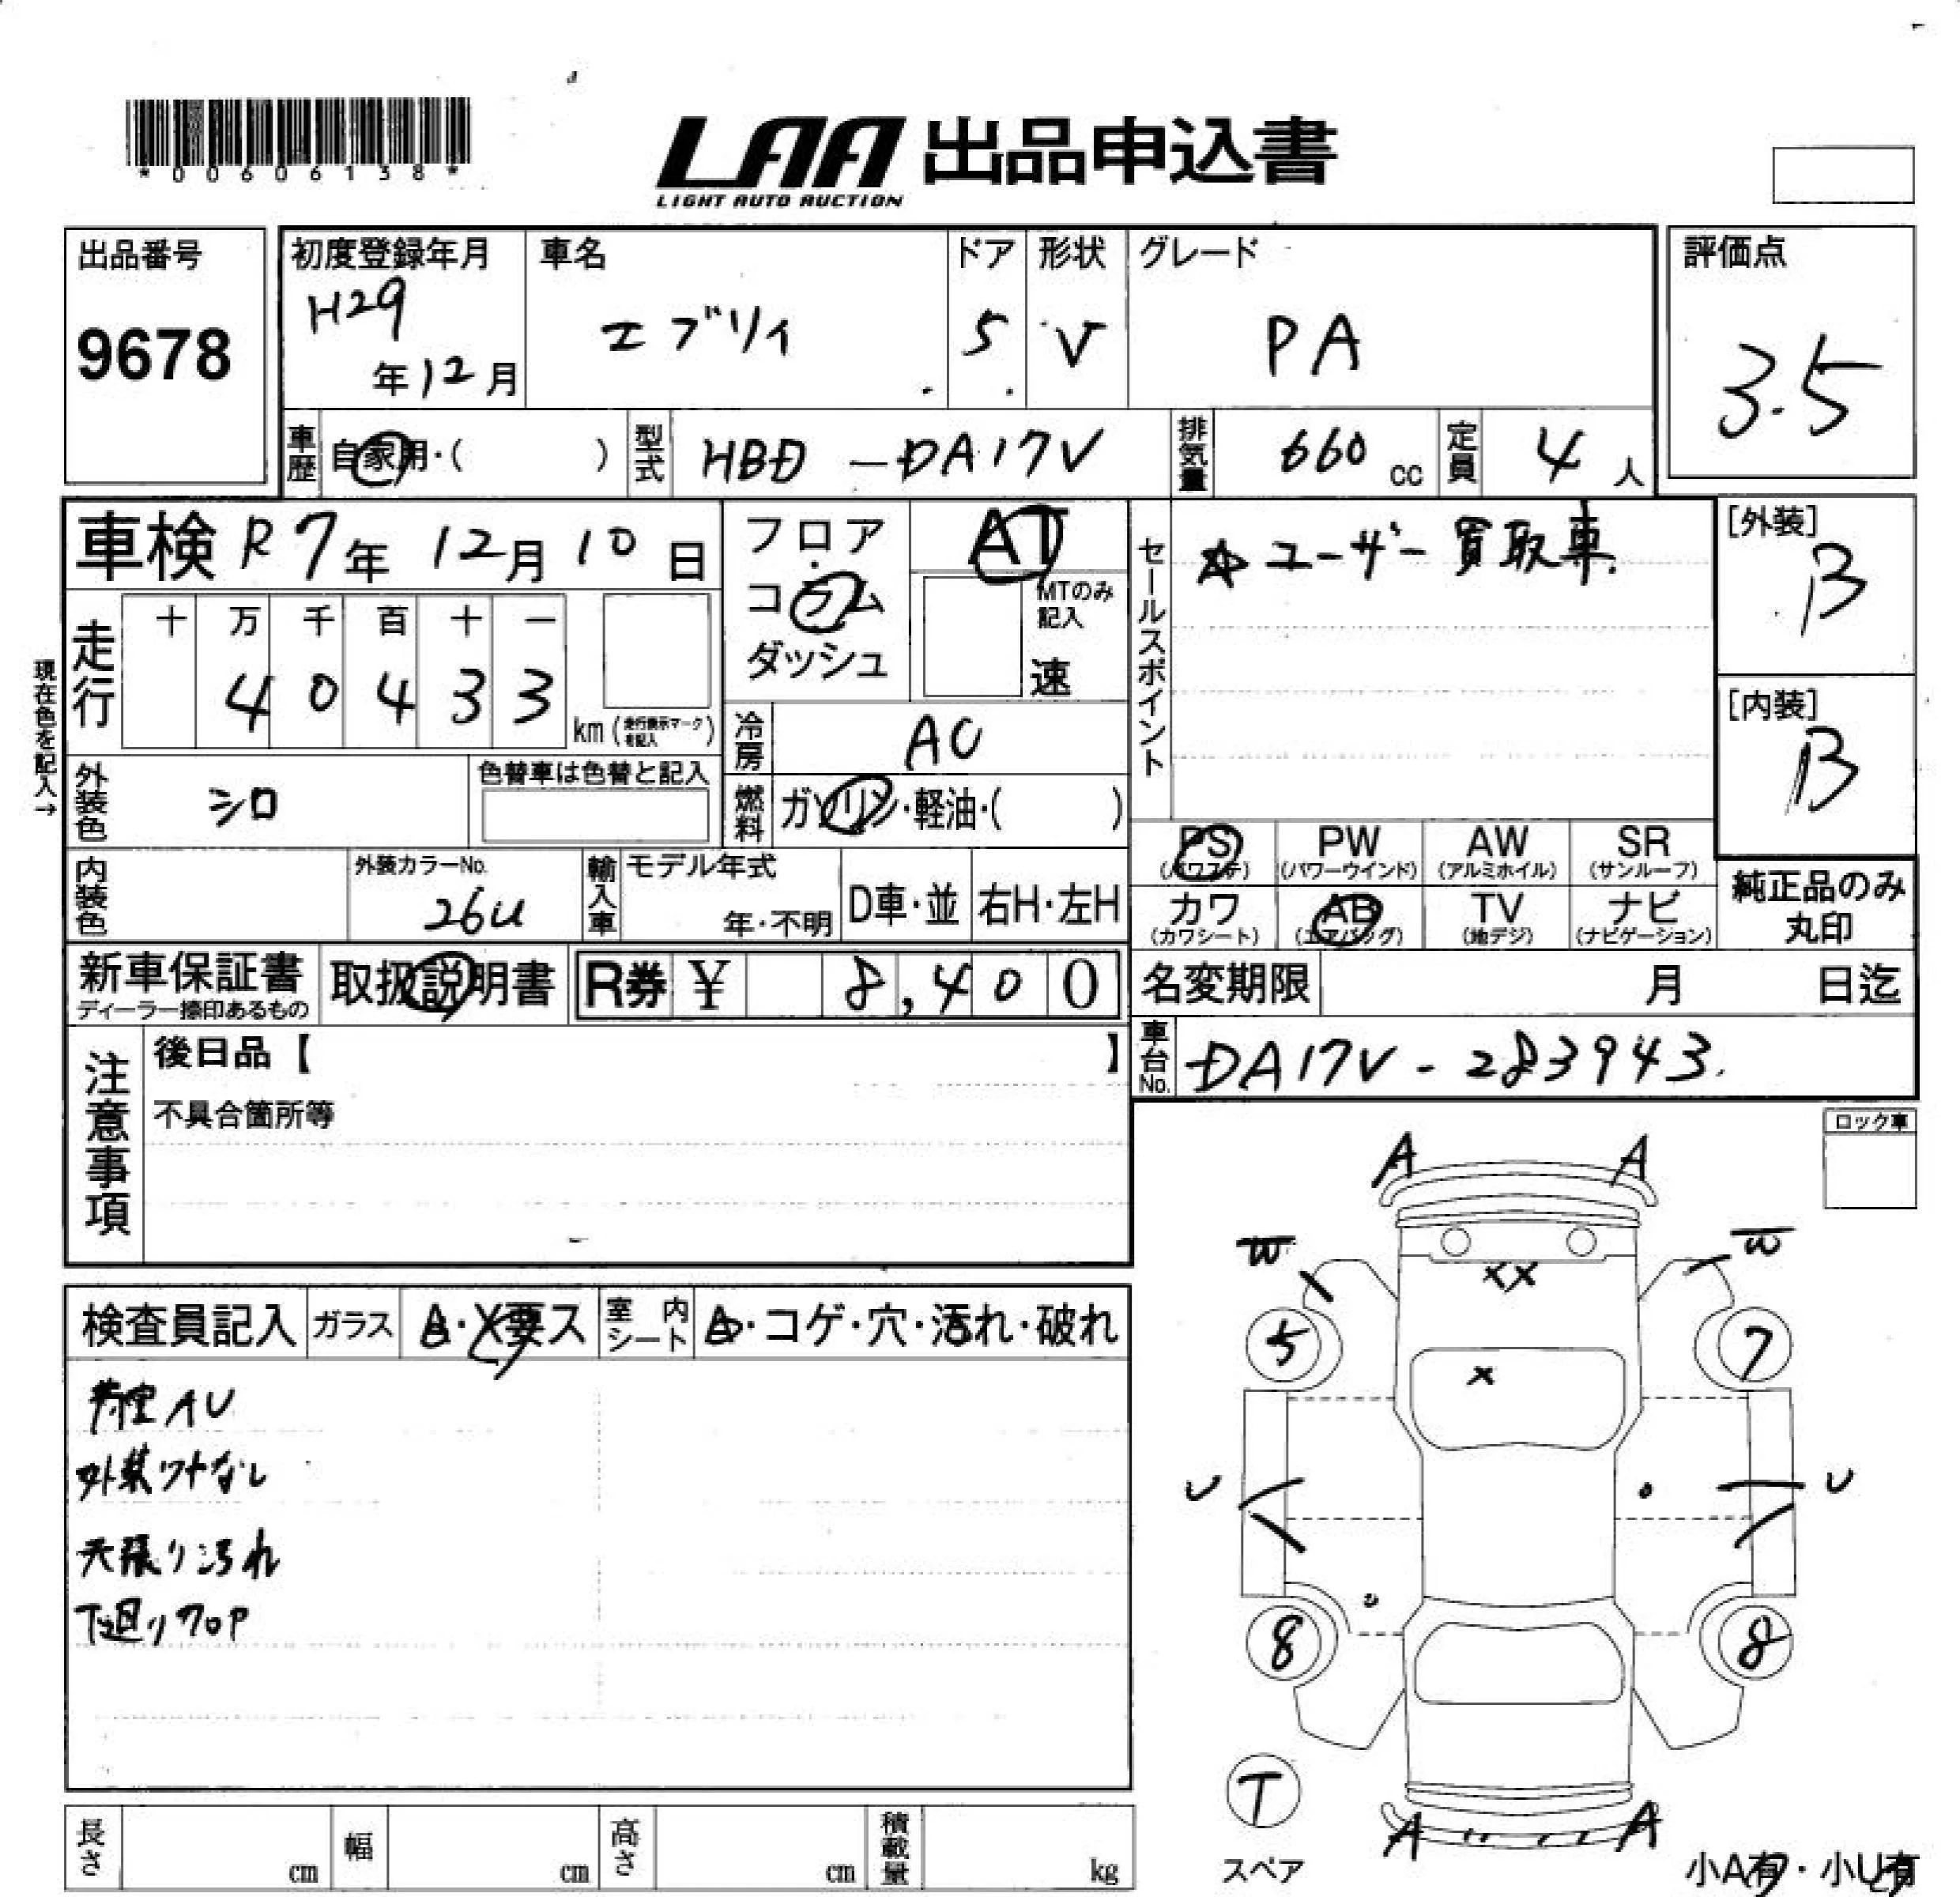 *00606138*
LAA 出品申込書
LIGHT AUTO AUCTION
出品番号
9678
初度登録年月
H29
年12月
車名
エブリィ
ドア
5
形状
V
グレード
PA
評価点
3.5
車歴 自家用・( )
型式 HBD-DA17V
排気量 660cc
定員 4人
車検 R7年 12月 10日
走行
十 万 千 百 十 一
4 0 4 3 3
km(走行表示マークを記入)
現在色を記入→
フロア
コラム
ダッシュ
AT
MTのみ
記入
速
冷房 AC
燃料 ガソリン・軽油・( )
セールスポイント
☆ユーザー買取車.
[外装]
B
[内装]
B
外装色 シロ
色替車は色替と記入
内装色
外装カラーNo.
26U
輸入車 モデル年式
年・不明
D車・並
右H・左H
PS
(パワステ)
PW
(パワーウインド)
AW
(アルミホイル)
SR
(サンルーフ)
カワ
(カワシート)
AB
(エアバッグ)
TV
(地デジ)
ナビ
(ナビゲーション)
純正品のみ
丸印
新車保証書
ディーラー捺印あるもの
取扱説明書
R券 ¥ 8,400
名変期限 月 日迄
車台No. DA17V-283943.
注意事項
後日品【 】
不具合箇所等
ロック車
検査員記入 ガラス A・X要ス
室内シート A・コゲ・穴・汚れ・破れ
荷室AU
外装ワナなし
天張り汚れ
下廻りフロP
A A
W W
XX
5 7
X
U U
8 8
T
スペア
A A
小A有・小U有
長さ cm
幅 cm
高さ cm
積載量 kg